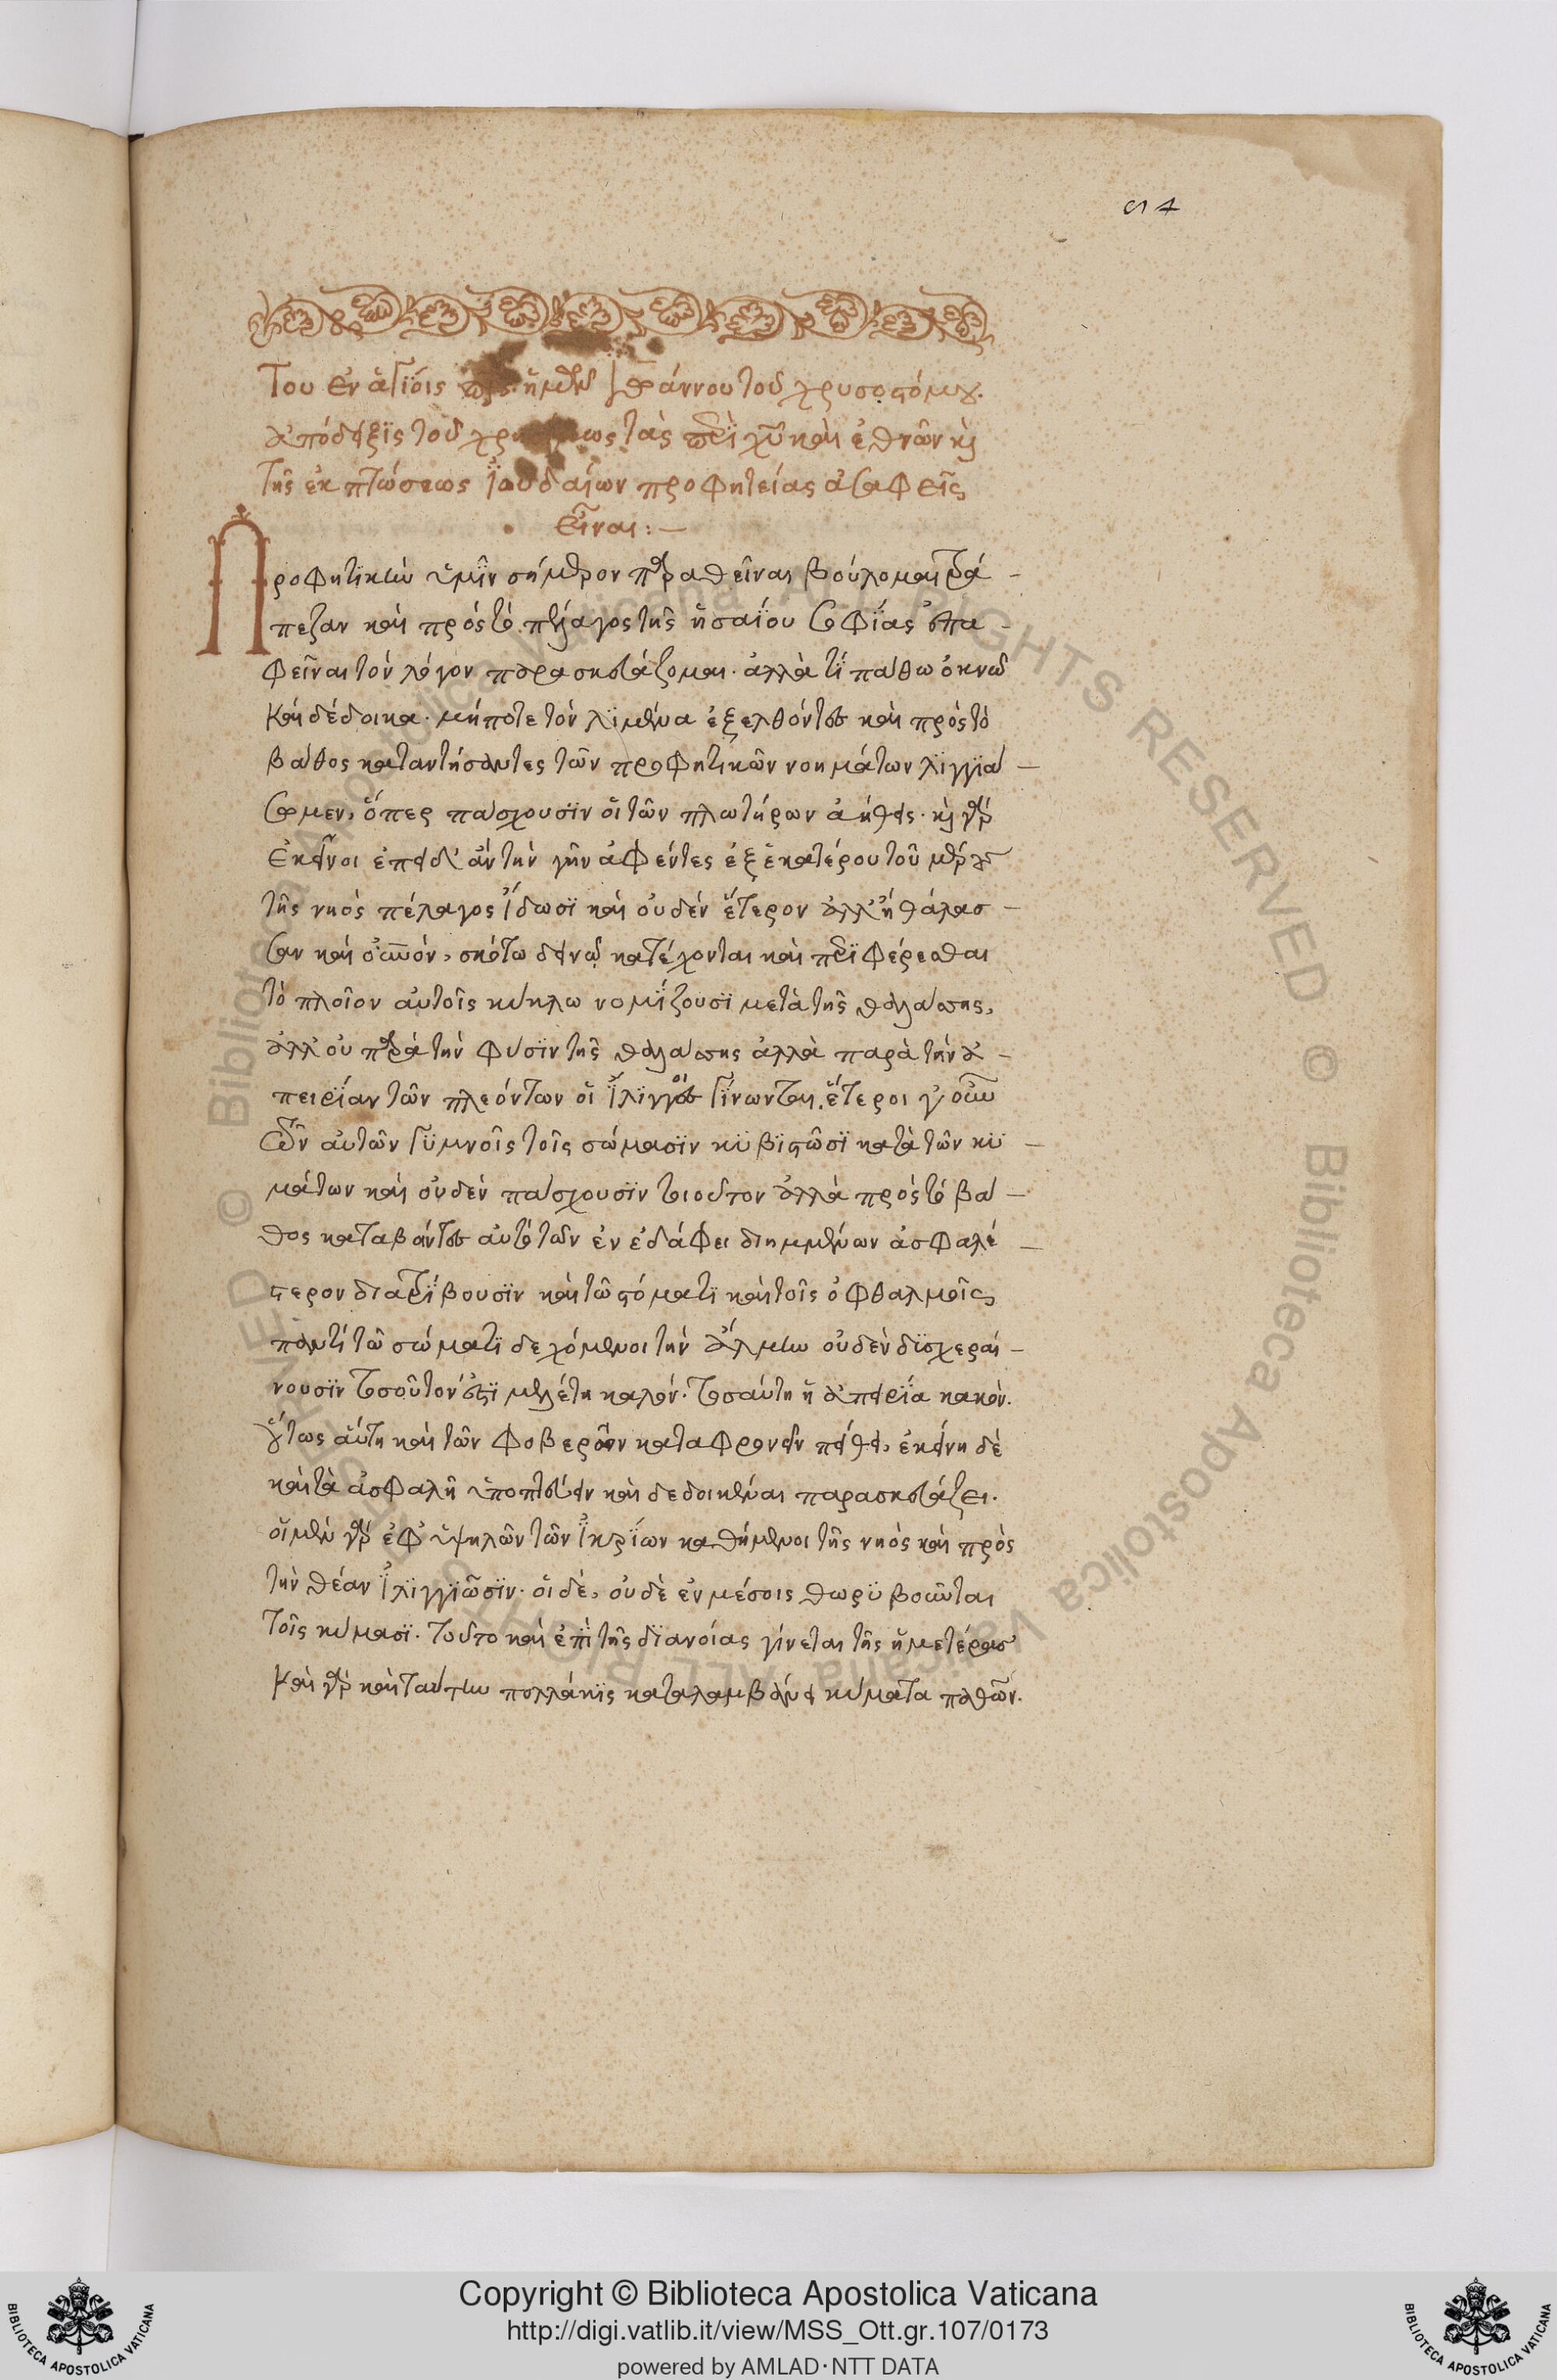 914
Του ἐν ἁγΐοις πρς ἡμῶν Ἰωάννου τοῦ χρυσοστόμου.
ἀπόδειξϊς τοῦ χρησίμως τὰς περὶ χῦ καὶ ἐθνῶν κὶ
τῆς ἐκπτώσεως ϊουδαίων προφητείας ἀσαφεῖς
εἶναι:—
Προφητϊκὴν ὑμῖν σήμερον παραθεῖναι βούλομαι τρά-
πεζαν καὶ πρὸς τὸ πέλαγος τῆς ἡσαΐου σοφΐας ἐπα-
φεῖναι τὸν λόγον παρασκευάζομαι. ἀλλὰ τί πάθω ὀκνῶ
καὶ δέδοικα. μήποτε τὸν λϊμένα ἐξελθόντες καὶ πρὸς τὸ
βάθος καταντήσαντες τῶν προφητικῶν νοημάτων λϊγγϊά-
σωμεν, ὅπερ πάσχουσϊν οἱ τῶν πλωτήρων ἀήθεις. κὶ γὰρ
ἐκεῖνοι ἐπειδ' ἂν τὴν γῆν ἀφέντες ἐξ ἑκατέρου τοῦ μέρους
τῆς νηὸς πέλαγος ἴδωσϊ καὶ οὐδὲν ἕτερον ἀλλ' ἢ θάλασ-
σαν καὶ οὐνόν, σκότω δεινῶ κατέχονται καὶ περϊφέρεσθαι
τὸ πλοῖον αὐτοῖς κύκλω νομΐζουσϊ μετὰ τῆς θαλάσσης,
ἀλλ' οὐ παρὰ τὴν φύσϊν τῆς θαλάσσης ἀλλὰ παρὰ τὴν ἀ-
πειρΐαν τῶν πλεόντων οἱ ἴλϊγγοι γΐνωνται. ἕτεροι γοῦν
ναυτῶν γϋμνοῖς τοῖς σώμασϊν κϋβϊστῶσϊ κατὰ τῶν κϋ-
μάτων καὶ οὐδὲν πάσχουσϊν τοιοῦτον ἀλλὰ πρὸς τὸ βά-
θος καταβάντες αὐτὸ τῶν ἐν ἐδάφει διημμένων ἀσφαλέ-
στερον διατρΐβουσϊν καὶ τῶ στόματϊ καὶ τοῖς ὀφθαλμοῖς
παντὶ τῶ σώματϊ δεχόμενοι τὴν ἅλμην οὐδὲν δϊσχεραί-
νουσϊν τοσοῦτον ἐστϊ μελέτη καλόν. τοσαύτη ἡ ἀπειρΐα κακόν.
οὕτως αὕτη καὶ τῶν φοβερῶν καταφρονεῖν πείθει, ἐκείνη δὲ
καὶ τὰ ἀσφαλῆ ὑποπτεύειν καὶ δεδοικέναι παρασκευάζει.
οἱ μὲν γὰρ ἐφ' ὑψηλῶν τῶν ϊκρΐων καθήμενοι τῆς νηὸς καὶ πρὸς
τὴν θέαν ϊλϊγγϊῶσϊν. οἱ δὲ, οὐδὲ ἐν μέσοις θωρϋβοῦνται
τοῖς κύμασϊ. τοῦτο καὶ ἐπὶ τῆς δϊανοίας γίνεται τῆς ἡμετέρας
καὶ γὰρ καὶ ταύτην πολλάκϊς καταλαμβάνει κύματα παθῶν.
Copyright © Biblioteca Apostolica Vaticana
http://digi.vatlib.it/view/MSS_Ott.gr.107/0173
powered by AMLAD·NTT DATA